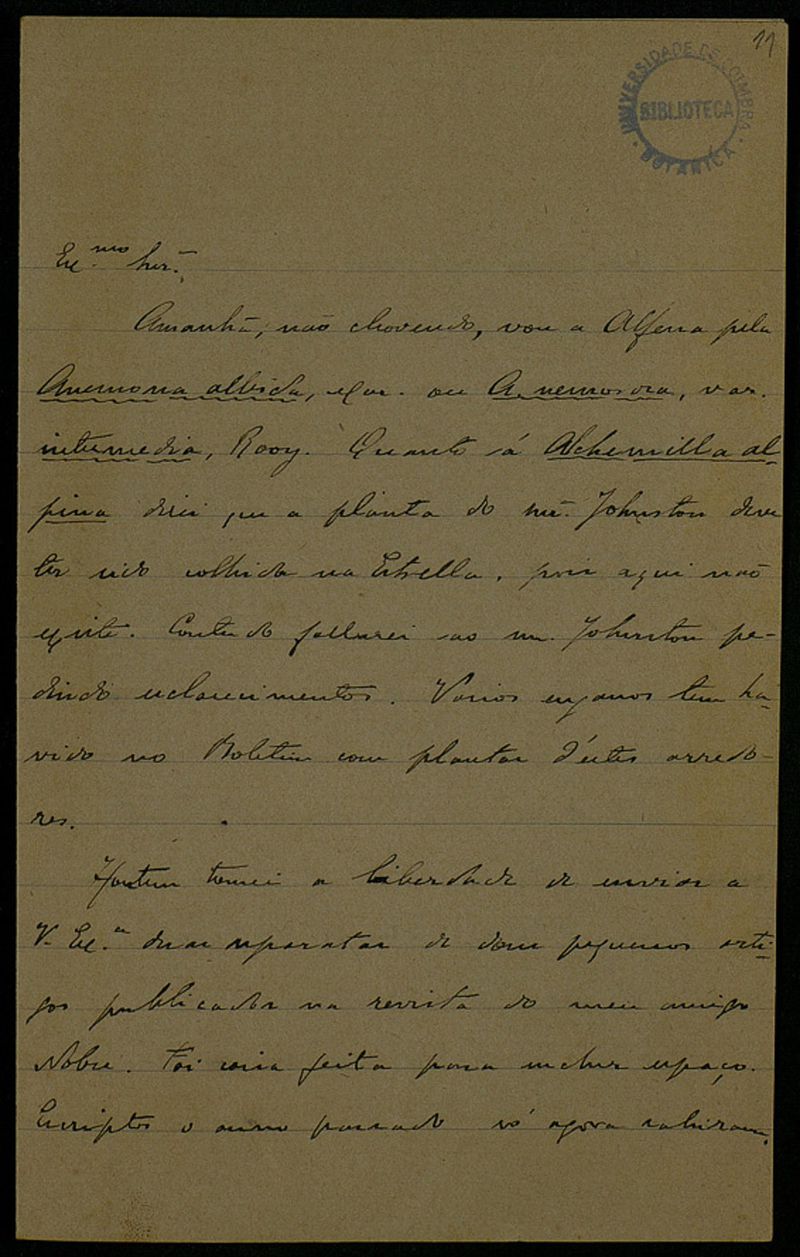 11
UNIVERSIDADE DE COIMBRA
BIBLIOTECA
BOTANICA
Ex.mo Snr.
Amanhã, não chovendo, vou a Alfena pela
Anemona albida, ou A. nemorosa, var.
intermedia, Rouy. Quanto á Alchemilla al-
pina direi que a planta do snr. Johnston deve
ter sido colhida na Estrella, pois aqui não
existe. Contudo fallarei ao snr. Johnston pe-
dindo esclarecimentos. Varios enganos tem ha-
vido no Boletim com plantas d'estes arredo-
res.
Hontem tomei a liberdade de enviar a
V. Ex.a duas separatas de dous pequenos arti-
gos publicados na revista do meu amigo
Nobre. Foi coisa feita para encher espaço.
Escriptos o anno passado só agora sahiram.